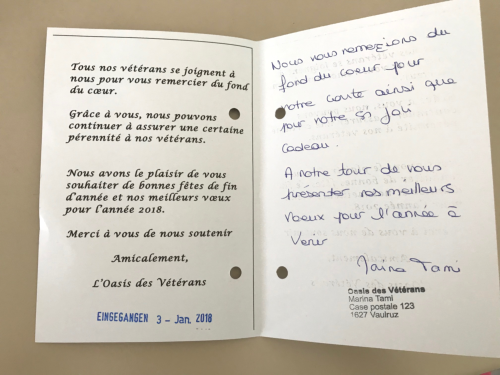 Tous nos vétérans se joignent à
nous pour vous remercier du fond
du cœur.
Grâce à vous, nous pouvons
continuer à assurer une certaine
pérennité à nos vétérans.
Nous avons le plaisir de vous
souhaiter de bonnes fêtes de fin
d'année et nos meilleurs vœux
pour l'année 2018.
Merci à vous de nous soutenir
Amicalement,
L'Oasis des Vétérans
EINGEGANGEN 3 - Jan. 2018
Nous vous remercions du
fond du coeur pour
votre carte ainsi que
pour votre si joli
cadeau.
A notre tour de vous
présenter nos meilleurs
voeux pour l'année à
venir
Tami
Oasis des Vétérans
Marina Tami
Case postale 123
1627 Vaulruz